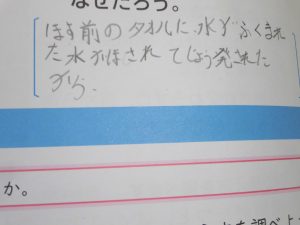 なぜだろう。
ほす前のタオルに、水がふくまれ
た水がほされてじょう発された
から。
か。
を調べよ